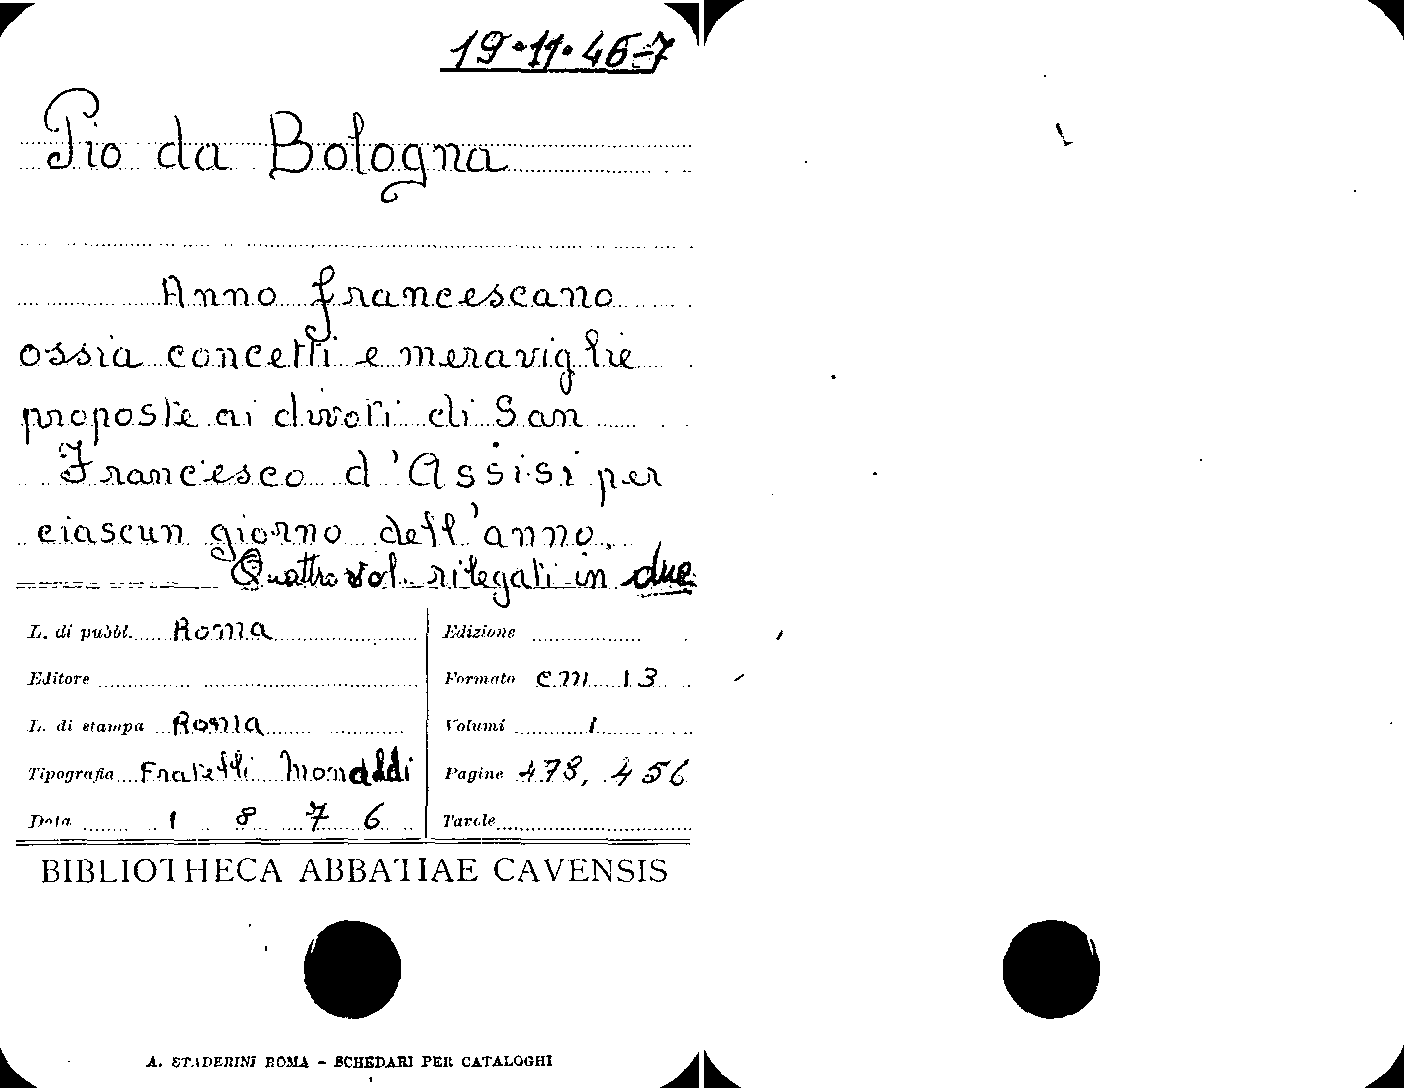 19·11·46-7
Pio da Bologna
Anno francescano
ossia concetti e meraviglie
proposte ai divoti di San
Francesco d'Assisi per
ciascun giorno dell'anno.
Quattro vol. rilegati in due
L. di pubbl. Roma
Editore
L. di stampa Roma
Tipografia Fratelli Monaldi
Data 1876
Edizione
Formato cm 13
Volumi 1
Pagine 478, 456
Tavole
BIBLIOTHECA ABBATIAE CAVENSIS
A. STADERINI ROMA - SCHEDARI PER CATALOGHI